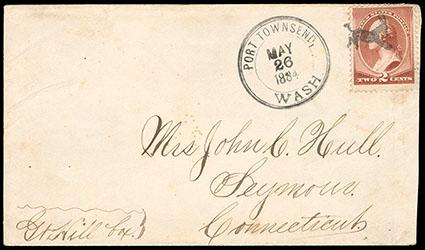 PORT TOWNSEND,
MAY
26
1884
WASH
TWO 2 CENTS
Mrs John C. Hull.
Seymour.
Connecticut.
Gt. Hill Box.